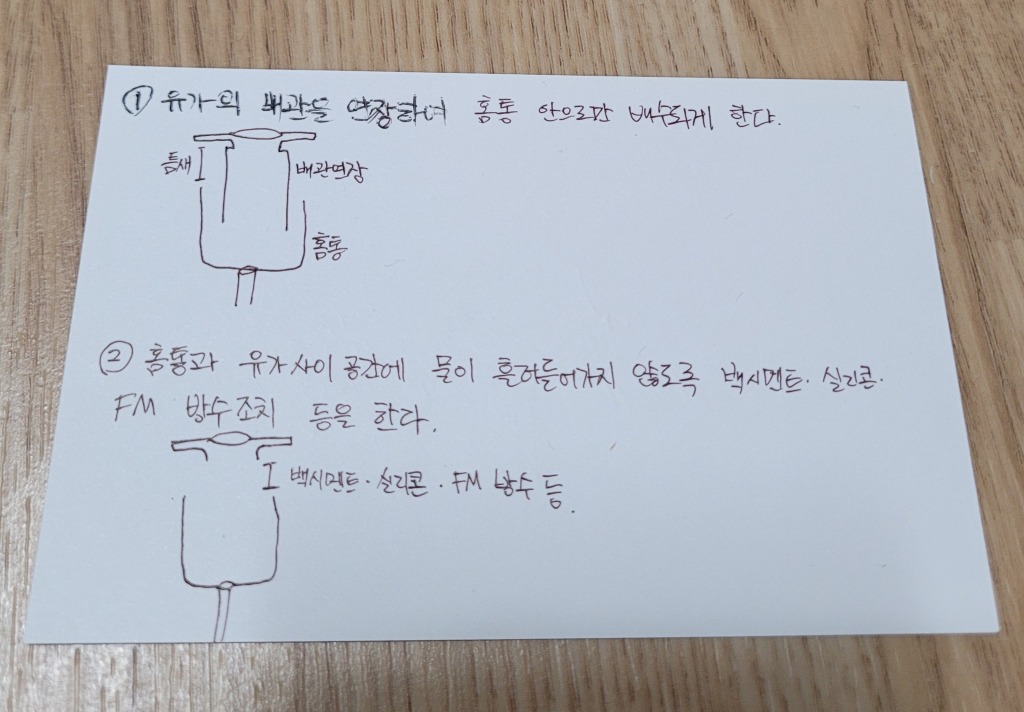 ① 유가의 배관을 연장하여 홈통 안으로만 배수되게 한다.
틈새
배관연장
홈통
② 홈통과 유가 사이 공간에 물이 흘러들어가지 않도록 백시멘트·실리콘·
FM 방수조치 등을 한다.
백시멘트·실리콘·FM 방수 등.